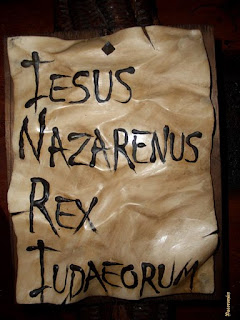 IESUS
NAZARENUS
REX
IUDAEORUM